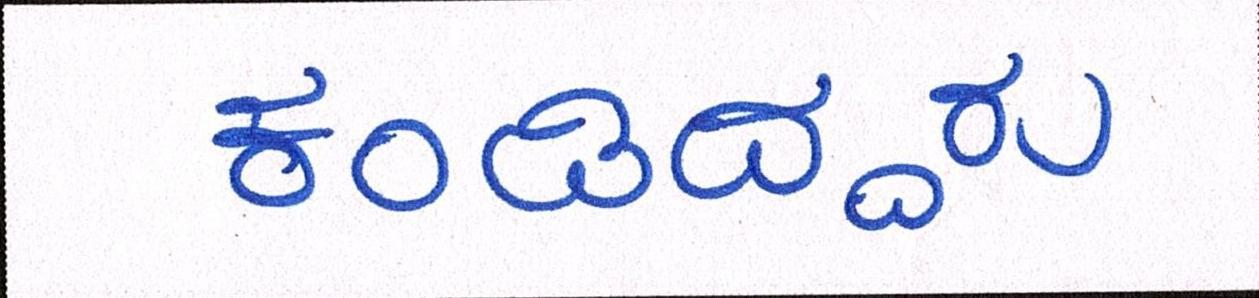 ಕಂಡಿದ್ದರು